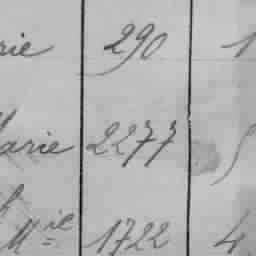 rie 290 1
arie 2277 5
Mie 1722 4